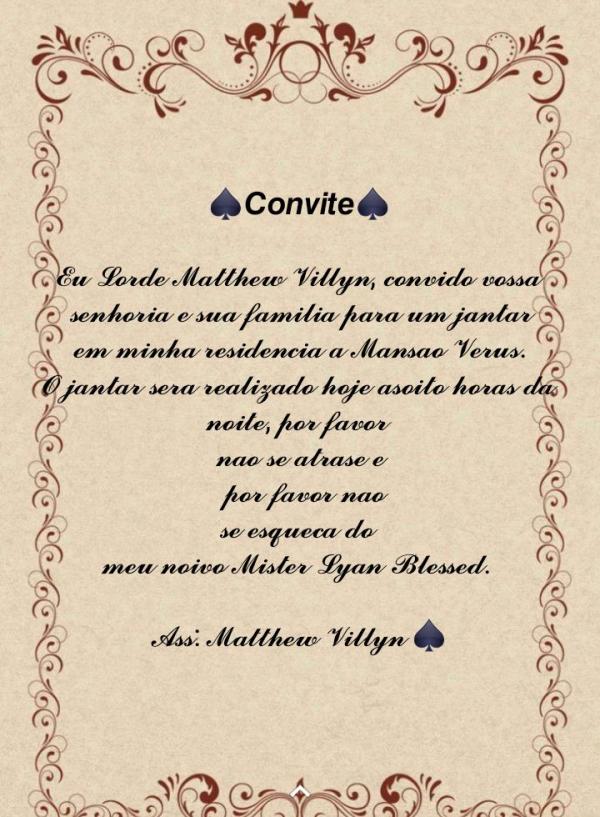 ♠Convite♠
Eu Lorde Matthew Villyn, convido vossa
senhoria e sua familia para um jantar
em minha residencia a Mansao Verus.
O jantar sera realizado hoje asoito horas da
noite, por favor
nao se atrase e
por favor nao
se esqueca do
meu noivo Mister Lyan Blessed.
Ass: Matthew Villyn ♠